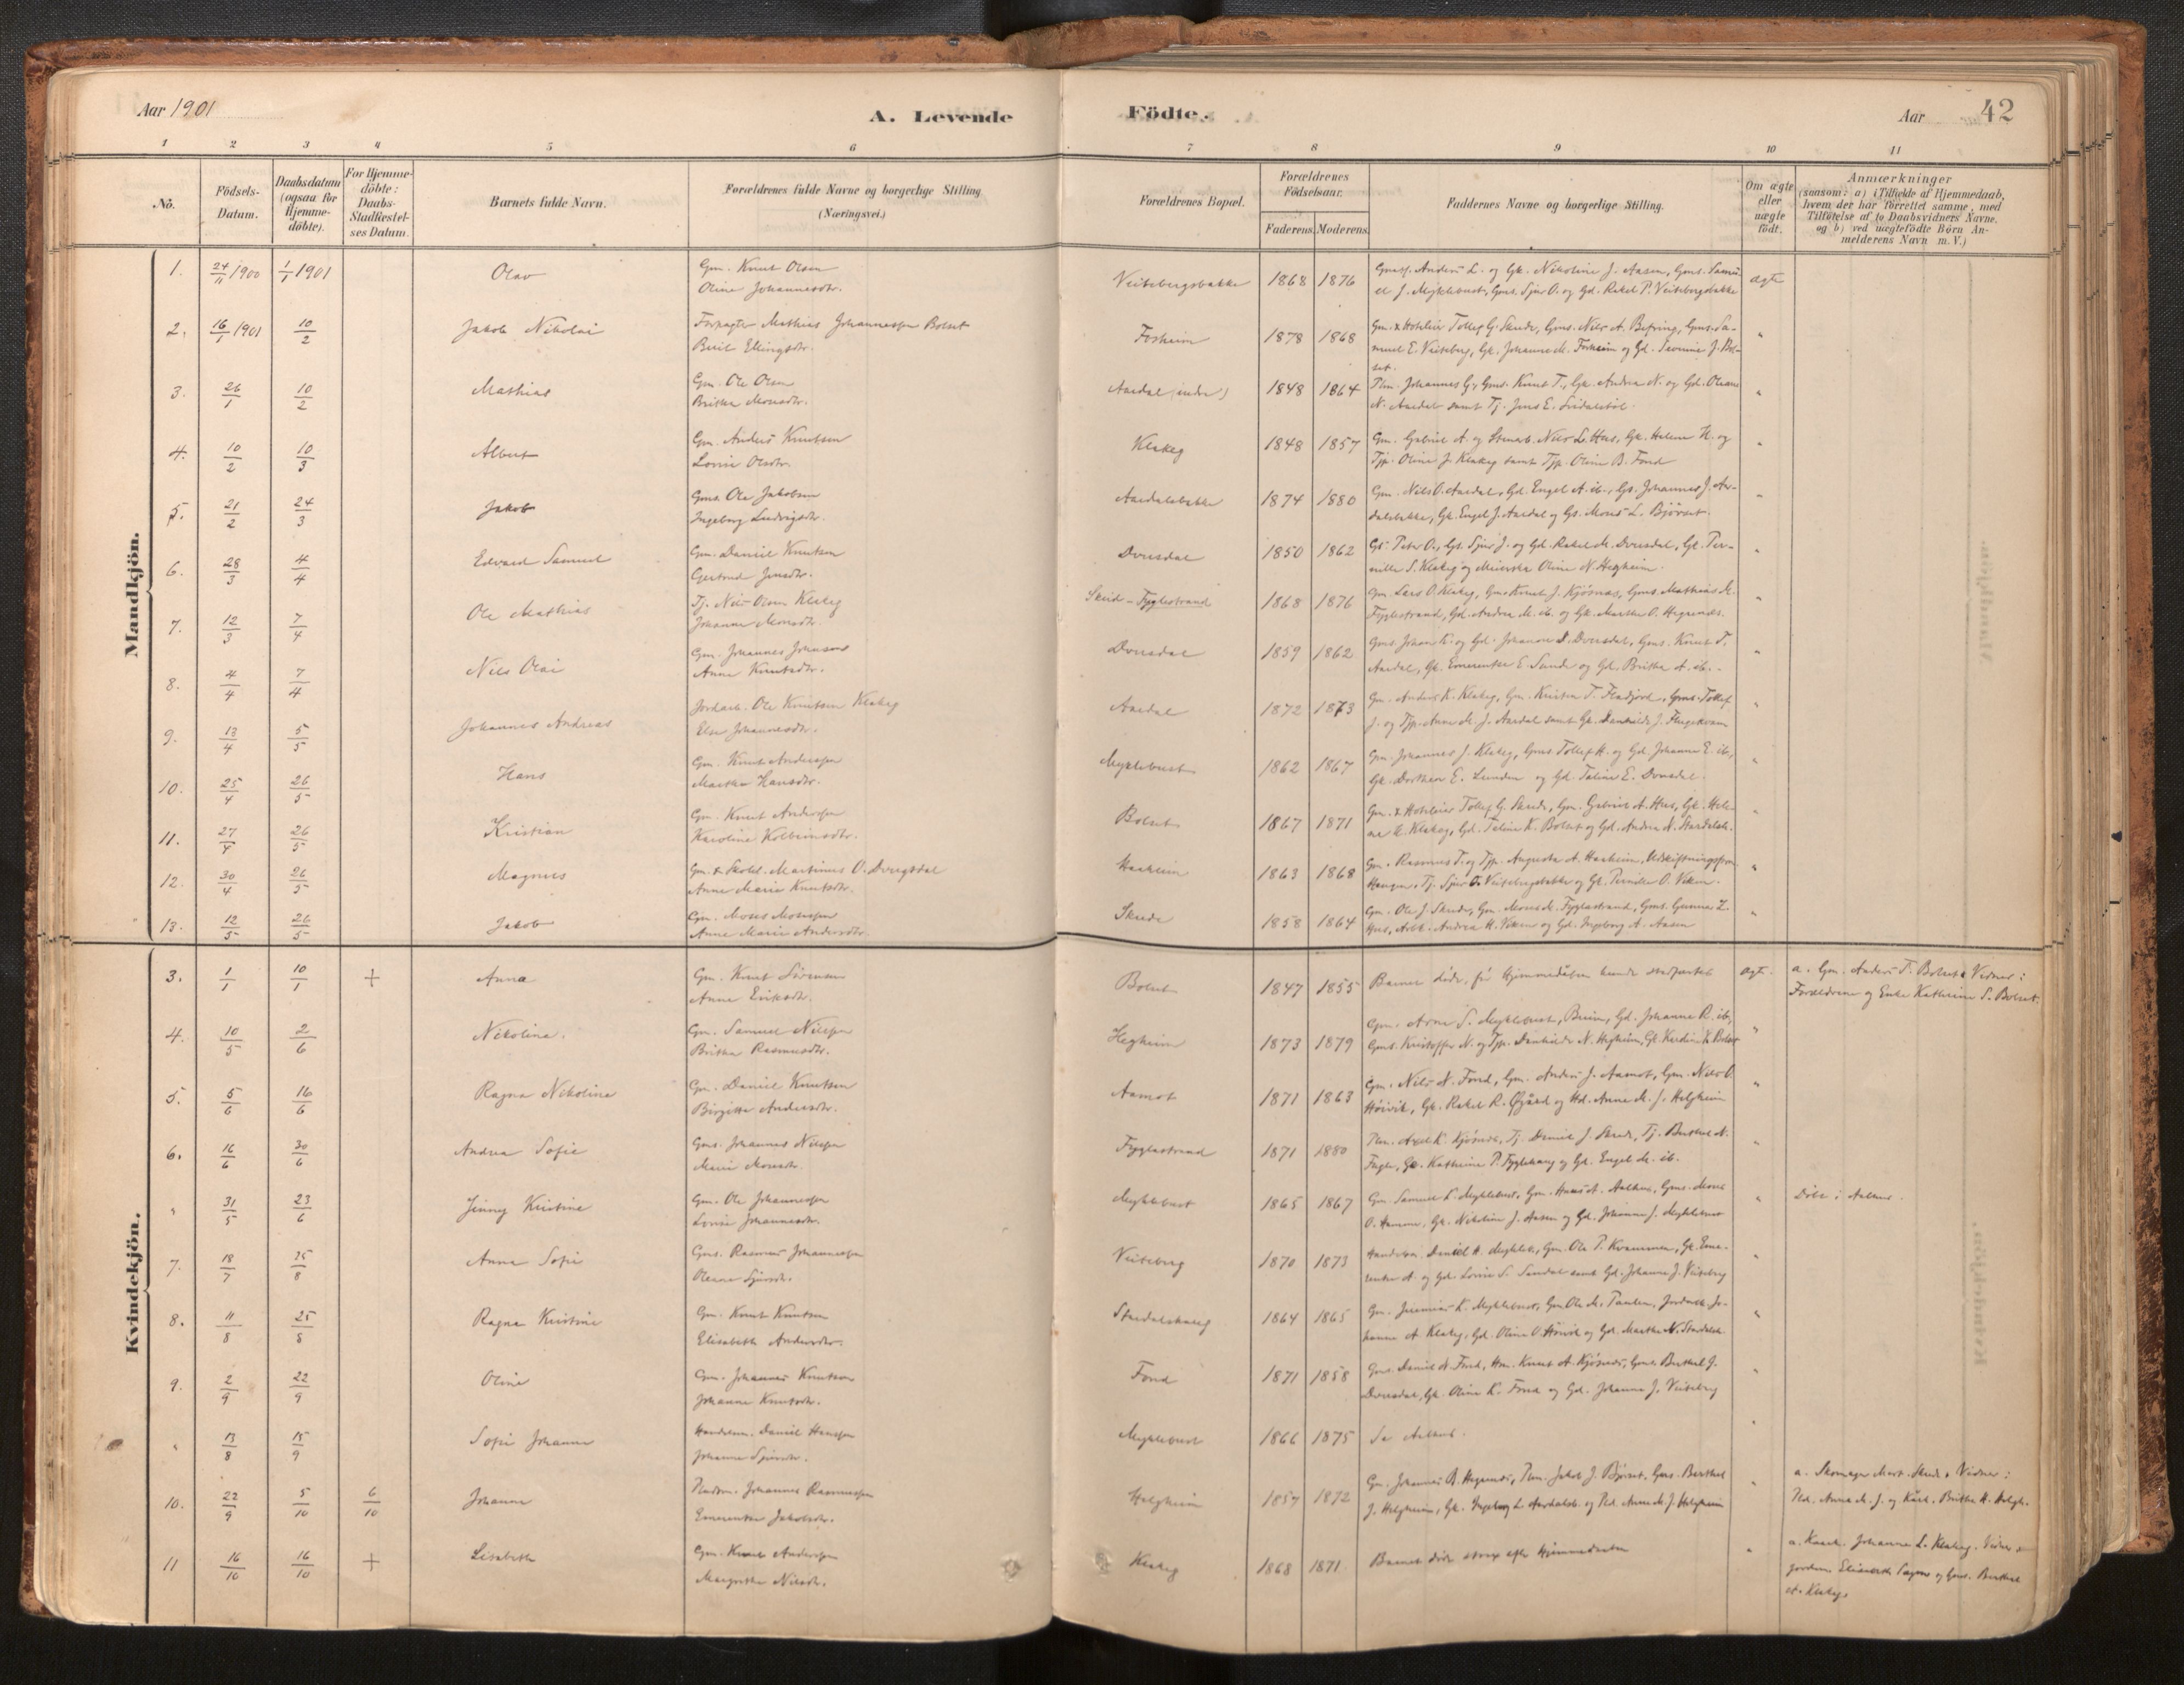 Aar 1901
A. Levende Födte.
Aar
42
1 2 3 4 5 6 7 8 9 10 11
No.
Födsels-Datum.
Daabsdatum (ogsaa for Hjemme-döbte).
For Hjemme-döbte: Daabs-Stadfæstel-ses Datum.
Barnets fulde Navn.
Forældrenes fulde Navne og borgerlige Stilling (Næringsvei.)
Forældrenes Bopæl.
Forældrenes Födselsaar.
Faderens. Moderens.
Faddernes Navne og borgerlige Stilling.
Om ægte eller uægte født.
Anmærkninger
(saasom: a) i Tilfælde af Hjemmedaab,
hvem der har forrettet samme, med
Tilføtelse af to Daabsvidners Navne.
og b) ved uægtefödte Börn An-
melderens Navn m. V.)
Mandkjön.
1. 24/11 1900 1/1 1901 Olav Gm. Knut Olsen Veitebergsbakke 1868 1876 Anders L. og Gk. Nikoline J. Aasen, Gms. Samu- ægte
Oline Johannesdtr. el J. Myklebust, Gms. Sjur O. og Gd. Rakel P. Veitebergsbakke
2. 16/1 1901 10/2 Jakob Nikolai Forpagter Mathias Johannessen Bolset Forheim 1878 1868 Gm. & Hotelier Tollef G. Skude, Gms. Nils A. Befring, Gms. Sa- "
Beril Ellingsdtr. muel E. Veiteberg, Gk. Johanne M. Forheim og Gd. J. Bol-
set.
3. 26/1 10/2 Mathias Gm. Ole Olsen Aardal (indre) 1848 1864 Johannes G., Gms. Knut T., Gk. Andrea N. og Gd. Oleane "
Britha Monsdtr. N. Aardal samt Tj. Jens E.
4. 10/2 10/3 Albert Gm. Anders Knutsen Klakeg 1848 1857 Gm. Gabriel A. og Nils L. Hus, Gk. Helene N. og "
Lovise Olsdtr. Tjp. Oline J. Klakeg samt Tjp. Oline B. Fond
5. 21/2 24/3 Jakob Gms. Ole Jakobsen Aardalsbakke 1874 1880 Gm. Nils O. Aardal, Gd. Engel A. ib., Gs. Johannes J. Aar- "
Ingeborg Ludvigsdtr. dalsbakke, Gk. Engel J. Aardal og Gs. Mons L. Bjørset.
6. 28/3 4/4 Edvard Samuel Gm. Daniel Knutsen Dvergsdal 1850 1862 Gs. Peter O., Gs. Sjur J. og Gd. Rakel M. Dvergsdal, Gk. Per- "
Gjertrud Jensdtr. nille S. Klakeg og Meierske Oline N. Hegheim.
7. 12/3 7/4 Ole Mathias Tj. Nils Olsen Klakeg Skrid - Fyglestrand 1868 1876 Gm. Lars O. Klakeg, Gms. Knut J. Kjøsnæs, Gms. Mathias M. "
Johanne Monsdtr. Fyglestrand, Gd. Andrea M. ib. og Gk. Marthe O. Hegrenæs.
8. 4/4 7/4 Nils Olai Gm. Johannes Johnsen Dvergsdal 1859 1862 Gms. Johan K. og Gd. Johanne D. Dvergsdal, Gms. Knut T. "
Anna Knutsdtr. Aardal, Gk. Emerentse E. Sunde og Gd. Britha A. ib.
9. 13/4 5/5 Johannes Andreas Jordarb. Ole Knutsen Klakeg Aardal 1872 1873 Gm. Anders K. Klakeg, Gm. Kristen T. Fladjord, Gms. Tollef "
Else Johannesdtr. J. og Tjp. Anne M. J. Aardal samt Gk. Dankilde J.
10. 25/4 26/5 Hans Gm. Knut Andersen Myklebust 1862 1867 Gm. Johannes J. Klakeg, Gms. Tollef H. og Gd. Johanne E. ib., "
Marthe Hansdtr. Gk. Dorthea E. Lunden og Gd. Taline E. Dvergsdal.
11. 27/4 26/5 Kristian Gm. Knut Andersen Bolset 1867 1871 Gm. & Hotelier Tollef G. Skude, Gm. Gabriel A. Hus, Gk. Hele- "
Karoline Kolbeinsdtr. ne Klakeg, Gd. Taline K. Bolset og Gd. Andrea N. Stardalsb.
12. 30/4 26/5 Magnus Gm. & Skolel. Martinus O. Dvergsdal Haaheim 1863 1868 Gm. Rasmus T. og Tjp. Augusta A. Haaheim, Udskiftningsform. "
Anne Marie Knutsdtr. Haugen, Tj. Sjur O. Veitebergsbakke og Gk. Pernille O. Viken.
13. 12/5 26/5 Jakob Gm. Moses Mosessen Skude 1858 1864 Gm. Ole J. Skude, Gm. Mons M. Fyglestrand, Gms. Gunnar L. "
Anne Marie Andersdtr. Hus, Andrea H. Viken og Gd. Ingeborg A. Aasen
Kvindekjön.
3. 1/1 10/1 + Anna Gm. Knut Sørensen Bolset 1847 1855 Barnet døde, før Hjemmedåben kunde stadfæstes ægte. a. Gm. Anders T. Bolset. Vidner:
Anne Eriksdtr. Forældrene og Enke Kathrine S. Bolset.
4. 10/5 2/6 Nikolina. Gm. Samuel Nilssen Hegheim 1873 1879 Gm. Arne S. Myklebust, Breim, Gd. Johanne R. ib., "
Britha Rasmusdtr. Gms. Kristoffer N. og Tjp. Dankilde N. Hegheim, Gk. K. Bolset
5. 5/6 16/6 Ragna Nikolina Gm. Daniel Knutsen Aamot 1871 1863 Gm. Nils N. Fond, Gm. Anders J. Aamot, Gm. Nils O. "
Birgitte Andersdtr. Høivik, Gk. Rakel R. Øygård og Anne M. J. Helgheim
6. 16/6 30/6 Andrea Sofie Gms. Johannes Nilssen Fyglestrand 1871 1880 Axel K. Kjøsnæs, Tj. Daniel J. Skude, Tj. Berthel N. "
Marie Monsdtr. Fugle, Gk. Kathrine P. Fyglehaug og Gd. Engel M. ib.
" 31/5 23/6 Jinny Kristine Gm. Ole Johannessen Myklebust 1865 1867 Gm. Samuel L. Myklebust, Gm. Hans A. Aalhus, Gms. Mons " Døbt i Aalhus.
Lovise Johannesdtr. O. Hamme, Gk. Nikoline J. Aasen og Gd. Johanne J. Myklebust
7. 18/7 25/8 Anna Sofie Gms. Rasmus Johannessen Veiteberg 1870 1873 Daniel H. Myklebust, Gm. Ole P. Kvammen, Gk. Eme- "
Oleane Sjursdtr. rentse A. og Gd. Lovise S. Sandal samt Gd. Johanne J. Veiteberg
8. 11/8 25/8 Ragna Kristine Gm. Knut Knutsen Stardalshaug 1864 1865 Gm. Jeremias K. Myklebust, Gm. Ole M. Paulen, Jo- "
Elisabeth Andersdtr. hanne A. Klakeg, Gd. Oline O. Høivik og Gd. Marthe N. Stardalsb.
9. 2/9 22/9 Oline Gm. Johannes Knutsen Fond 1871 1858 Gms. Daniel N. Fond, Knut A. Kjøsnæs, Gms. Berthel J. "
Johanne Knutsdtr. Dvergsdal, Gk. Oline K. Fond og Gd. Johanne J. Veiteberg
" 13/8 15/9 Sofie Johanne Handelsm. Daniel Hanssen Myklebust 1866 1875 Se Aalhus. "
Johanne Sjursdtr.
10. 22/9 5/10 6/10 Johanna Johannes Rasmussen Helgheim 1857 1872 Gm. Johannes A. Hegrenæs, Jakob J. Bjørset, Gms. Berthel " a. Skomager Mart. Skude. Vidner:
Emerentse Jakobsdtr. J. Helgheim, Gk. Ingeborg L. Aardalsb. og Anne M. J. Helgheim Anne M. J. og Britha H. Helgh.
11 16/10 16/10 + Lisabeth Gm. Knut Andersen Klakeg 1868 1871. Barnet døde strax efter Hjemmedåben " a. Johanne L. Klakeg. Vidner
Margrethe Nilsdtr. og Gms. Berthel
A. Klakeg.